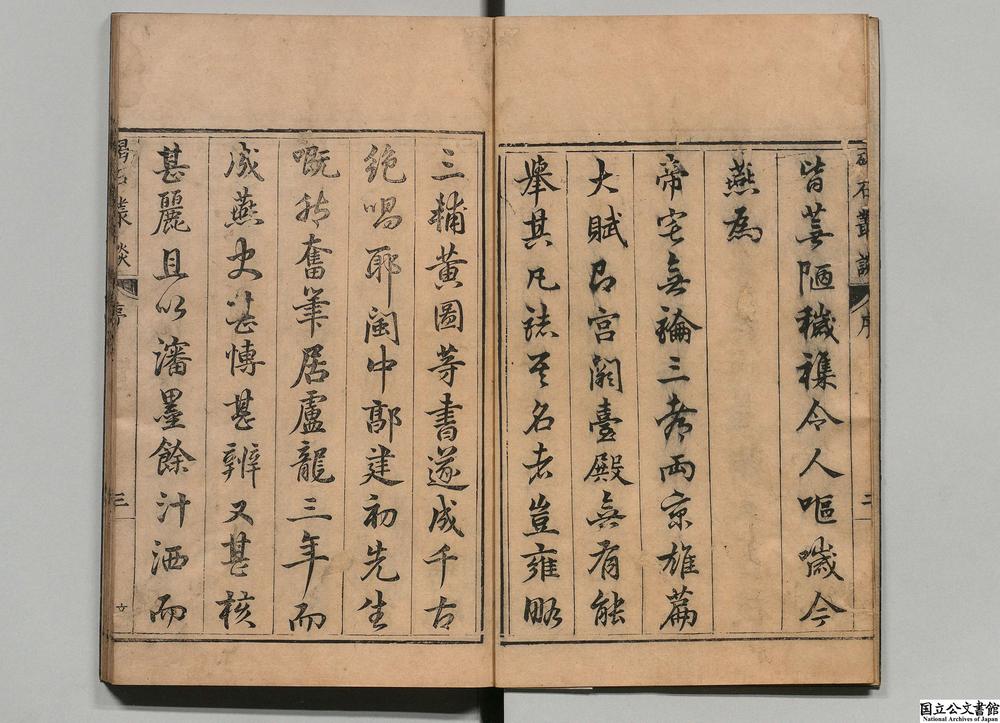 碣石叢談 序 二
皆蕪陋穢襍令人嘔噦今
燕為
帝宅無論三都兩京雄篇
大賦即宮闕臺殿無有能
舉其凡誌其名者豈雍略
三輔黃圖等書遂成千古
絕唱耶閩中郭建初先生
嘅然奮筆居盧龍三年而
成燕史甚愽甚辨又甚核
甚麗且以瀋墨餘汁洒而
碣石叢談 序 三
国立公文書館
National Archives of Japan